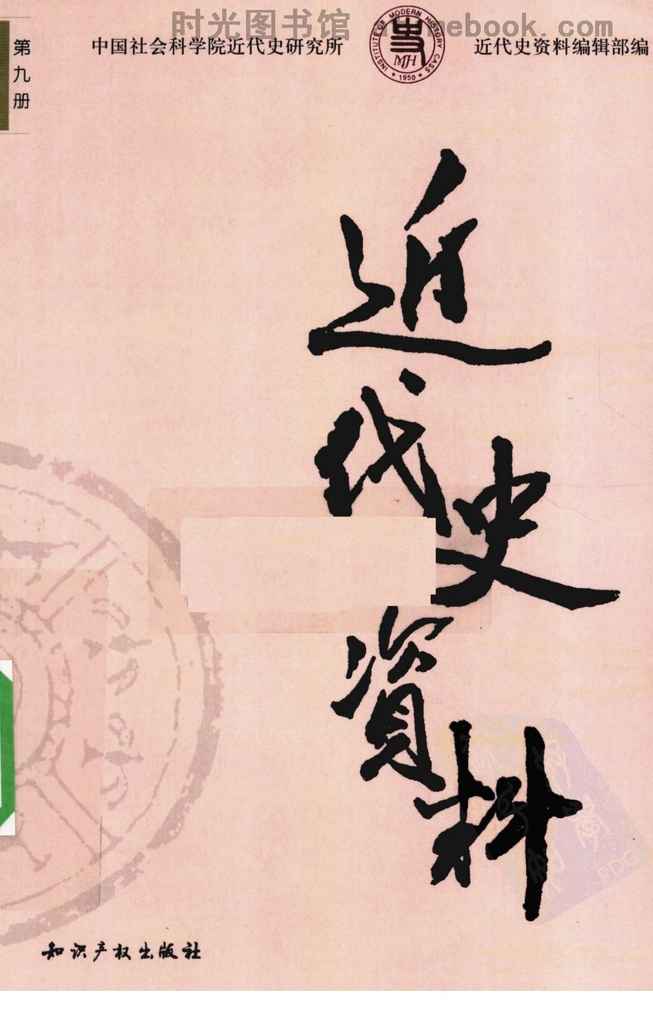 时光图书馆
中国社会科学院近代史研究所
INSTITUTE OF MODERN HISTORY CASS
MH
1950
近代史资料编辑部编
第九册
近代史資料
知识产权出版社